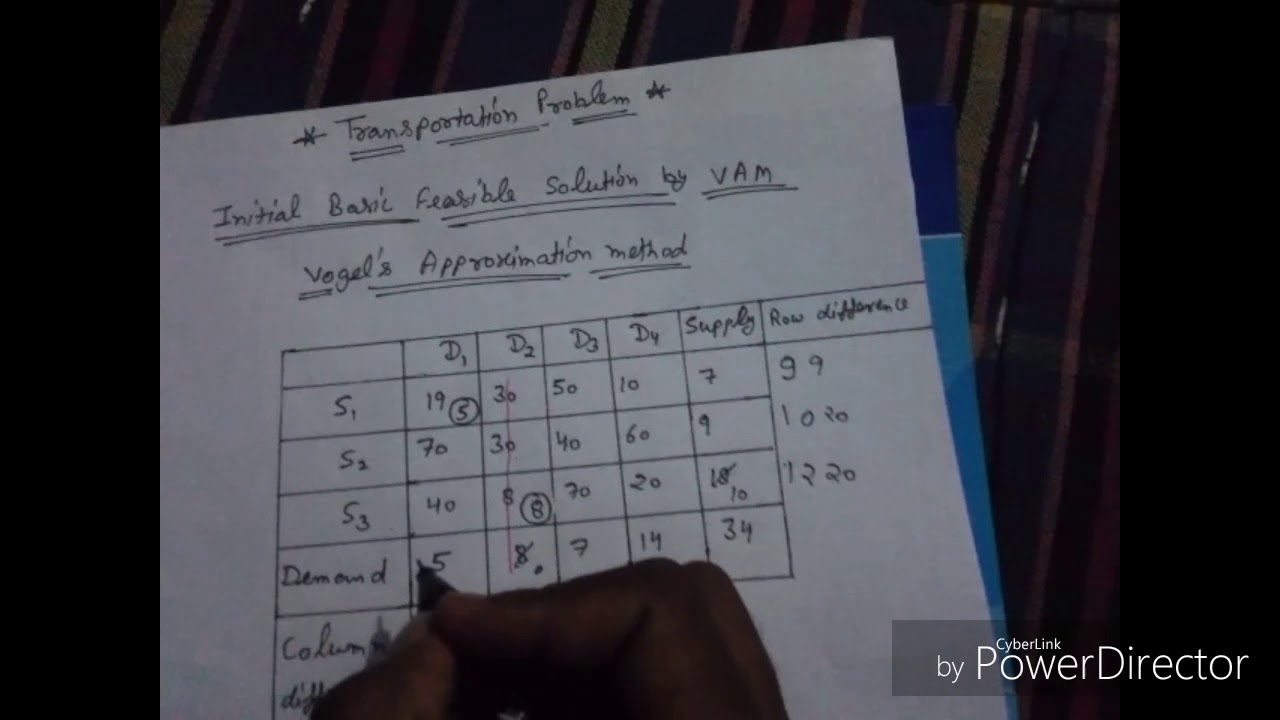 * Transportation Problem *
Initial Basic Feasible Solution by VAM
Vogel's Approximation method
D1 D2 D3 D4 Supply Row difference
S1 19 (5) 30 50 10 7 9 9
S2 70 30 40 60 9 10 20
S3 40 8 (8) 70 20 18 10 12 20
Demand 5 8 0 7 14 34
Colum
diff
CyberLink
by PowerDirector